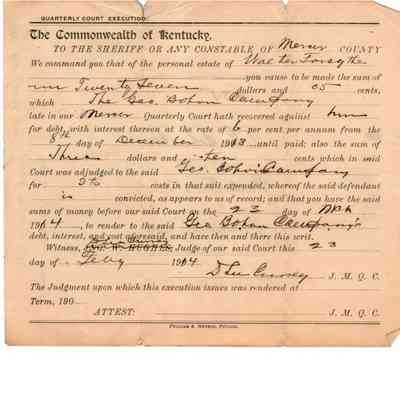 QUARTERLY COURT EXECUTION.
The Commonwealth of Kentucky,
TO THE SHERIFF OR ANY CONSTABLE OF Mercer COUNTY
We command you that of the personal estate of Walter Forsythe
you cause to be made the sum of
Twenty Seven dollars and 05 cents,
which The Geo. Bohon Company
late in our Mercer Quarterly Court hath recovered against him
for debt, with interest thereon at the rate of 6 per cent. per annum from the
8th day of December 1913 until paid; also the sum of
Three dollars and ten cents which in said
Court was adjudged to the said Geo. Bohon Company
for costs in that suit expended, whereof the said defendant
is convicted, as appears to us of record; and that you have the said
sums of money before our said Court on the 23 day of Mch
1914, to render to the said Geo Bohon Company's
debt, interest, and cost aforesaid, and have then and there this writ.
Witness, HUGHES, Judge of our said Court this 23
day of Feby 1914
J. M. Q. C.
The Judgment upon which this execution issues was rendered at
Term, 190
ATTEST: J. M. Q. C.